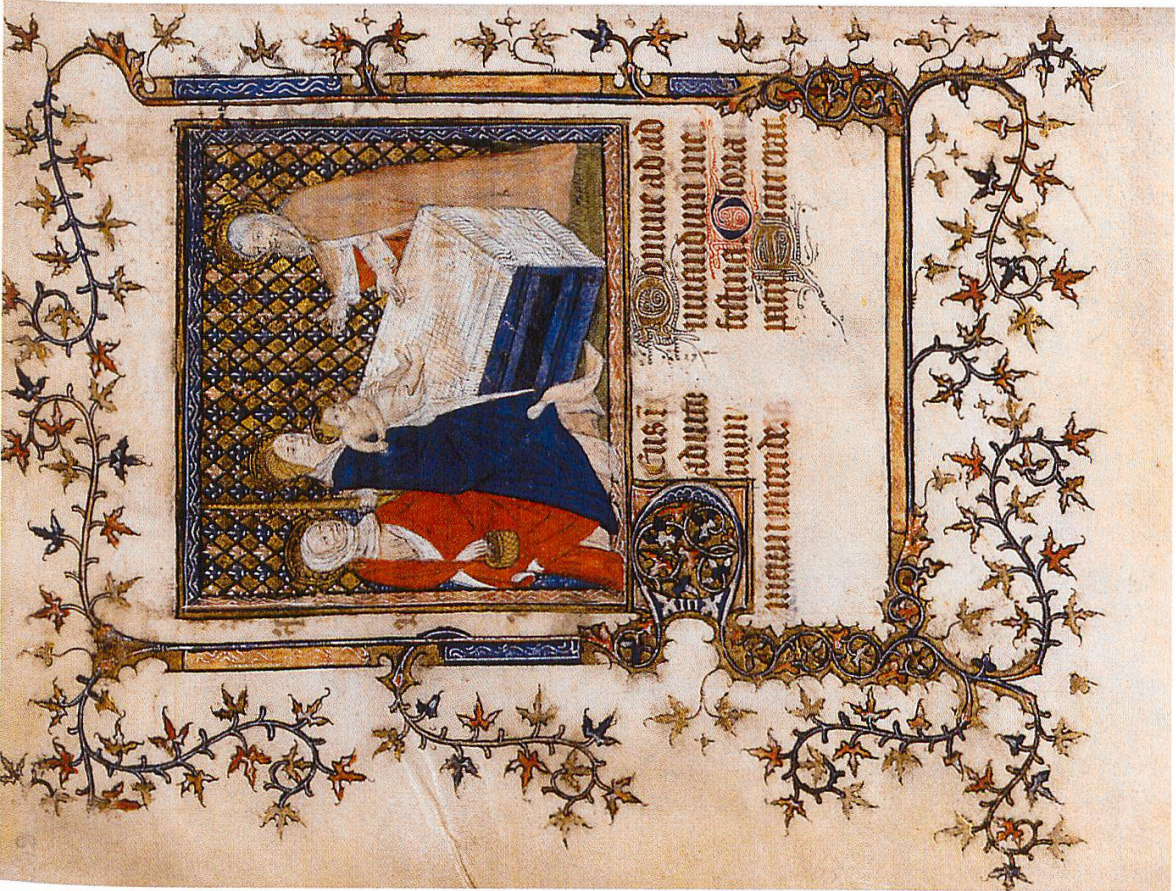 Deus in
adiuto
rium
meum intende.
Domine ad ad
iuuandum me
festina. Gloria
patri Sicut erat.